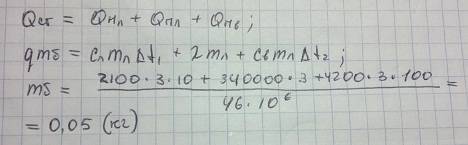 Qсг = Qнл + Qпл + Qнв ;
qmб = cлmлΔt₁ + 2mл + cвmлΔt₂ ;
mб = (2100·3·10 + 340000·3 + 4200·3·100) / (46·10⁶) =
= 0,05 (кг)